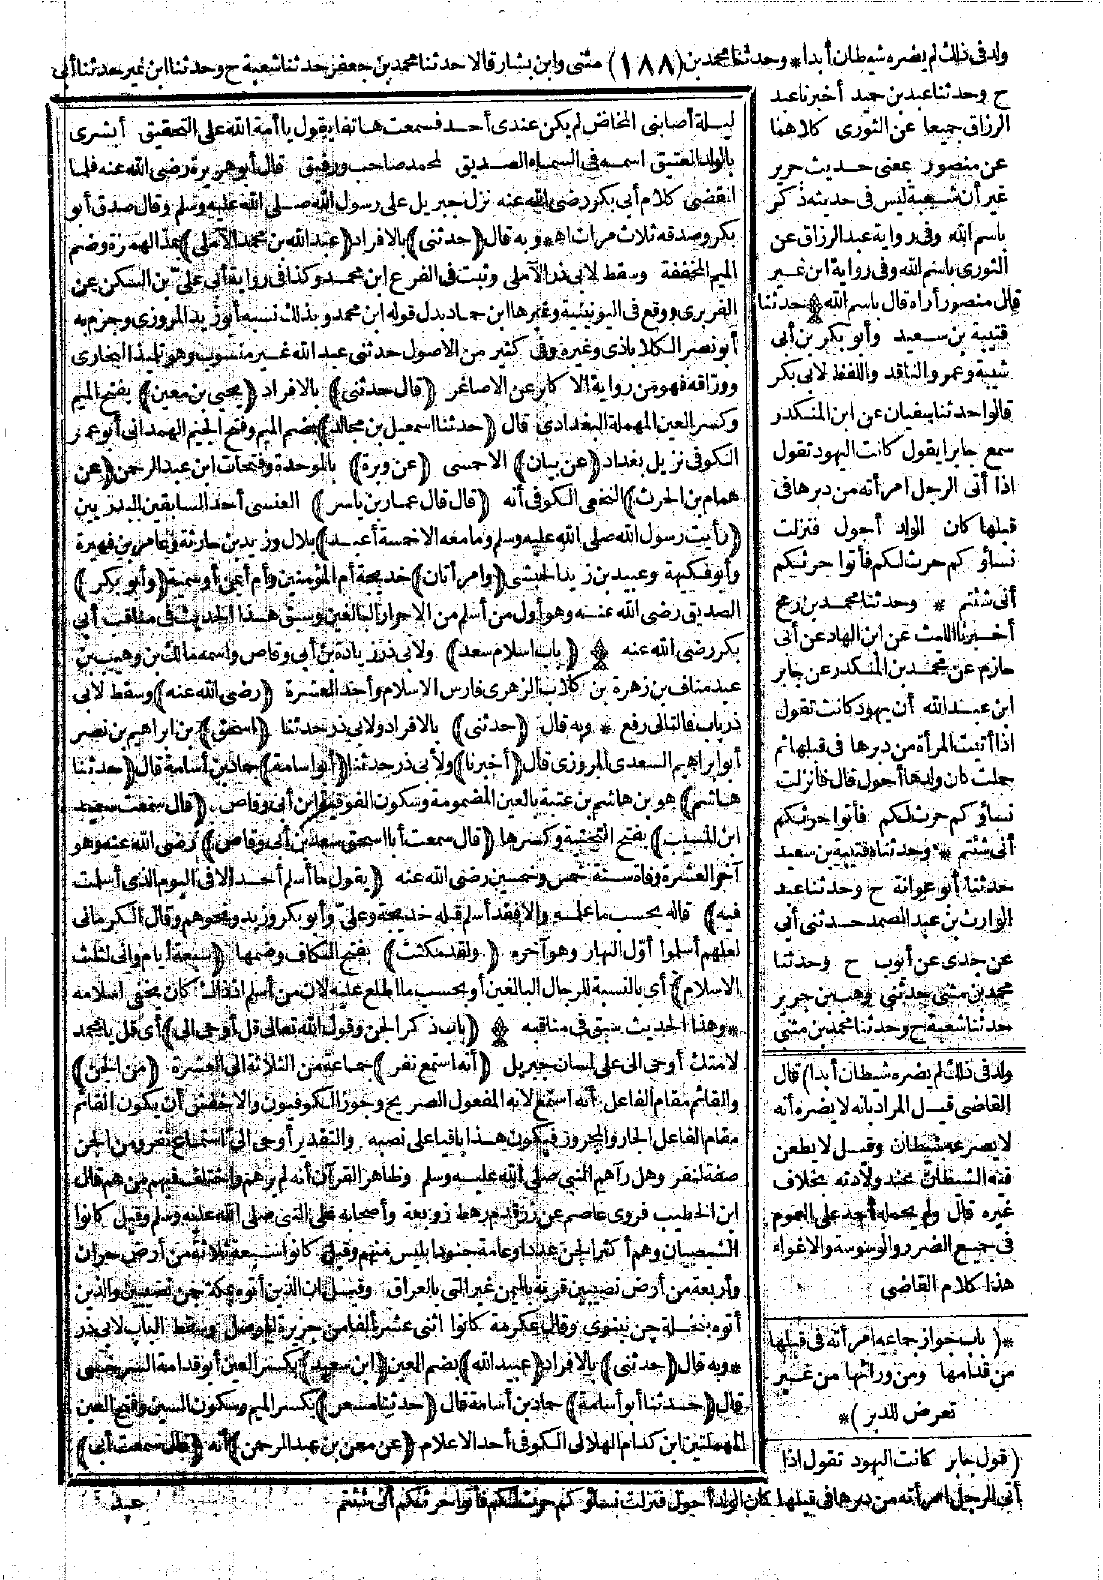 ولد في ذلك لم يضره شيطان أبدا * وحدثنا محمد بن (١٨٨) مثنى وابن بشار قالا حدثنا محمد بن جعفر حدثنا شعبة ح وحدثنا ابن نمير حدثنا أبى
ح وحدثنا عبد بن حميد أخبرنا عبد
الرزاق جميعا عن الثورى كلاهما
عن منصور بمعنى حديث جرير
غير أن شعبة ليس في حديثه ذكر
باسم الله وفى رواية عبد الرزاق عن
الثورى باسم الله وفى رواية ابن نمير
قال منصور أراه قال باسم الله حدثنا
قتيبة بن سعيد وأبو بكر بن أبى
شيبة وعمرو الناقد واللفظ لابى بكر
قالوا حدثنا سفيان عن ابن المنكدر
سمع جابرا يقول كانت اليهود تقول
اذا أتى الرجل امرأته من دبرها فى
قبلها كان الولد أحول فنزلت
نساؤكم حرث لكم فأتوا حرثكم
أنى شئتم * وحدثنا محمد بن رمح
أخبرنا الليث عن ابن الهاد عن أبى
حازم عن محمد بن المنكدر عن جابر
ابن عبد الله أن يهود كانت تقول
اذا أتيت المرأة من دبرها فى قبلها ثم
حملت كان ولدها أحول قال فأنزلت
نساؤكم حرث لكم فأتوا حرثكم
أنى شئتم * وحدثناه قتيبة بن سعيد
حدثنا أبو عوانة ح وحدثنا عبد
الوارث بن عبد الصمد حدثنى أبى
عن جدى عن أيوب ح وحدثنا
محمد بن مثنى حدثنى وهب بن جرير
حدثنا شعبة ح وحدثنا محمد بن مثنى
ولد فى ذلك لم يضره شيطان أبدا) قال
القاضى قيل المراد بانه لا يضره أنه
لا يصرعه شيطان وقيل لا يطعن
فيه الشيطان عند ولادته بخلاف
غيره قال ولم يحمله أحد على العموم
فى جميع الضرر والوسوسة والاغواء
هذا كلام القاضى
*(باب جواز جماعه امرأته فى قبلها
من قدامها ومن ورائها من غير
تعرض للدبر)*
(قول جابر كانت اليهود تقول اذا
أتى الرجل امرأته من دبرها فى قبلها كان الولد أحول فنزلت نساؤكم حرث لكم فأتوا حرثكم أنى شئتم
ليلة أصابنى المخاض لم يكن عندى أحد فسمعت هاتفا يقول يا أمة الله على التحقيق أبشرى
بالولد العتيق اسمه فى السماء الصديق لمحمد صاحب ورفيق قال أبو هريرة رضى الله عنه فلما
انقضى كلام أبى بكر رضى الله عنه نزل جبريل على رسول الله صلى الله عليه وسلم وقال صدق أبو
بكر وصدقه ثلاث مرات اه * وبه قال (حدثنى) بالافراد (عبد الله بن محمد الآملى) بمد الهمزة وضم
الميم المخففة وسقط لابى ذر الآملى وثبت فى الفرع ابن محمد وكذا فى رواية أبى على بن السكن عن
الفربرى ووقع فى اليونينية وغيرها ابن حماد بدل قوله ابن محمد وبذلك نسبه أبو زيد المروزى وجزم به
أبو نصر الكلاباذى وغيره وفى كثير من الاصول حدثنى عبد الله غير منسوب وهو تلميذ البخارى
ووراقه فهو من رواية الاكابر عن الاصاغر (قال حدثنى) بالافراد (يحيى بن معين) بفتح الميم
وكسر العين المهملة البغدادى قال (حدثنا اسمعيل بن مجالد) بضم الميم وفتح الجيم الهمدانى أبو عمر
الكوفى نزيل بغداد (عن بيان) الاحمسى (عن وبرة) بالموحدة وفتحات ابن عبد الرحمن (عن
همام بن الحرث) النخعى الكوفى أنه (قال قال عمار بن ياسر) العنسى أحد السابقين البدريين
(رأيت رسول الله صلى الله عليه وسلم وما معه الا خمسة أعبد) بلال وزيد بن حارثة وعامر بن فهيرة
وأبو فكيهة وعبيد بن زيد الحبشى (وامرأتان) خديجة أم المؤمنين وأم أيمن أو سمية (وأبو بكر)
الصديق رضى الله عنه وهو أول من أسلم من الاحرار البالغين وسبق هذا الحديث فى مناقب أبى
بكر رضى الله عنه (باب اسلام سعد) ولابى ذر زيادة بن أبى وقاص واسمه مالك بن وهيب بن
عبد مناف بن زهرة بن كلاب الزهرى فارس الاسلام وأحد العشرة (رضى الله عنه) وسقط لابى
ذر باب فالتالى رفع * وبه قال (حدثنى) بالافراد ولابى ذر حدثنا (اسحق) بن ابراهيم بن نصر
أبو ابراهيم السعدى المروزى قال (أخبرنا) ولأبى ذر حدثنا (أبو اسامة) حماد بن أسامة قال (حدثنا
هاشم) هو بن هاشم بن عتبة بالعين المضمومة وسكون الفوقية ابن أبى وقاص (قال سمعت سعيد
ابن المسيب) بفتح التحتية وكسرها (قال سمعت أبا اسحق سعد بن أبى وقاص) رضى الله عنه وهو
آخر العشرة وفاة سنة خمس وخمسين رضى الله عنه (يقول ما أسلم أحد الا فى اليوم الذى أسلمت
فيه) قاله بحسب ما علمه والا فقد أسلم قبله خديجة وعلى وأبو بكر وزيد ونحوهم وقال الكرمانى
لعلهم أسلموا أول النهار وهو آخره (ولقد مكثت) بفتح الكاف وضمها (سبعة أيام وانى لثلث
الاسلام) أى بالنسبة للرجال البالغين أو بحسب ما اطلع عليه لان من أسلم اذ ذاك كان يخفى اسلامه
* وهذا الحديث سبق فى مناقبه (باب ذكر الجن وقول الله تعالى قل أوحى الى) أى قل يا محمد
لامتك أوحى الى على لسان جبريل (أنه استمع نفر) جماعة من الثلاثة الى العشرة (من الجن)
والقائم مقام الفاعل أنه استمع لانه المفعول الصريح وجوز الكوفيون والاخفش أن يكون القائم
مقام الفاعل الجار والمجرور فيكون هذا باقيا على نصبه والتقدير أوحى الى استماع نفر ومن الجن
صفة لنفر وهل رآهم النبى صلى الله عليه وسلم وظاهر القرآن أنه لم يرهم واختلف فيهم من هم قال
ابن الخطيب فروى عاصم عن زر قدم رهط زوبعة وأصحابه على النبى صلى الله عليه وسلم وقيل كانوا
الشيصبان وهم أكثر الجن عددا وعامة جنود ابليس منهم وقيل كانوا سبعة ثلاثة من أرض حران
وأربعة من أرض نصيبين قرية باليمن غير التى بالعراق وقيل ان الذين أتوه بمكة جن نصيبين والذين
أتوه بنخلة جن نينوى وقال عكرمة كانوا اثنى عشر ألفا من جزيرة الموصل وسقط الباب لابى ذر
* وبه قال (حدثنى) بالافراد (عبيد الله) بضم العين (ابن سعيد) بكسر العين أبو قدامة السرخسى
قال (حدثنا أبو أسامة) حماد بن أسامة قال (حدثنا مسعر) بكسر الميم وسكون السين وفتح العين
المهملتين ابن كدام الهلالى الكوفى أحد الاعلام (عن معن بن عبد الرحمن) أنه (قال سمعت أبى)
عبد